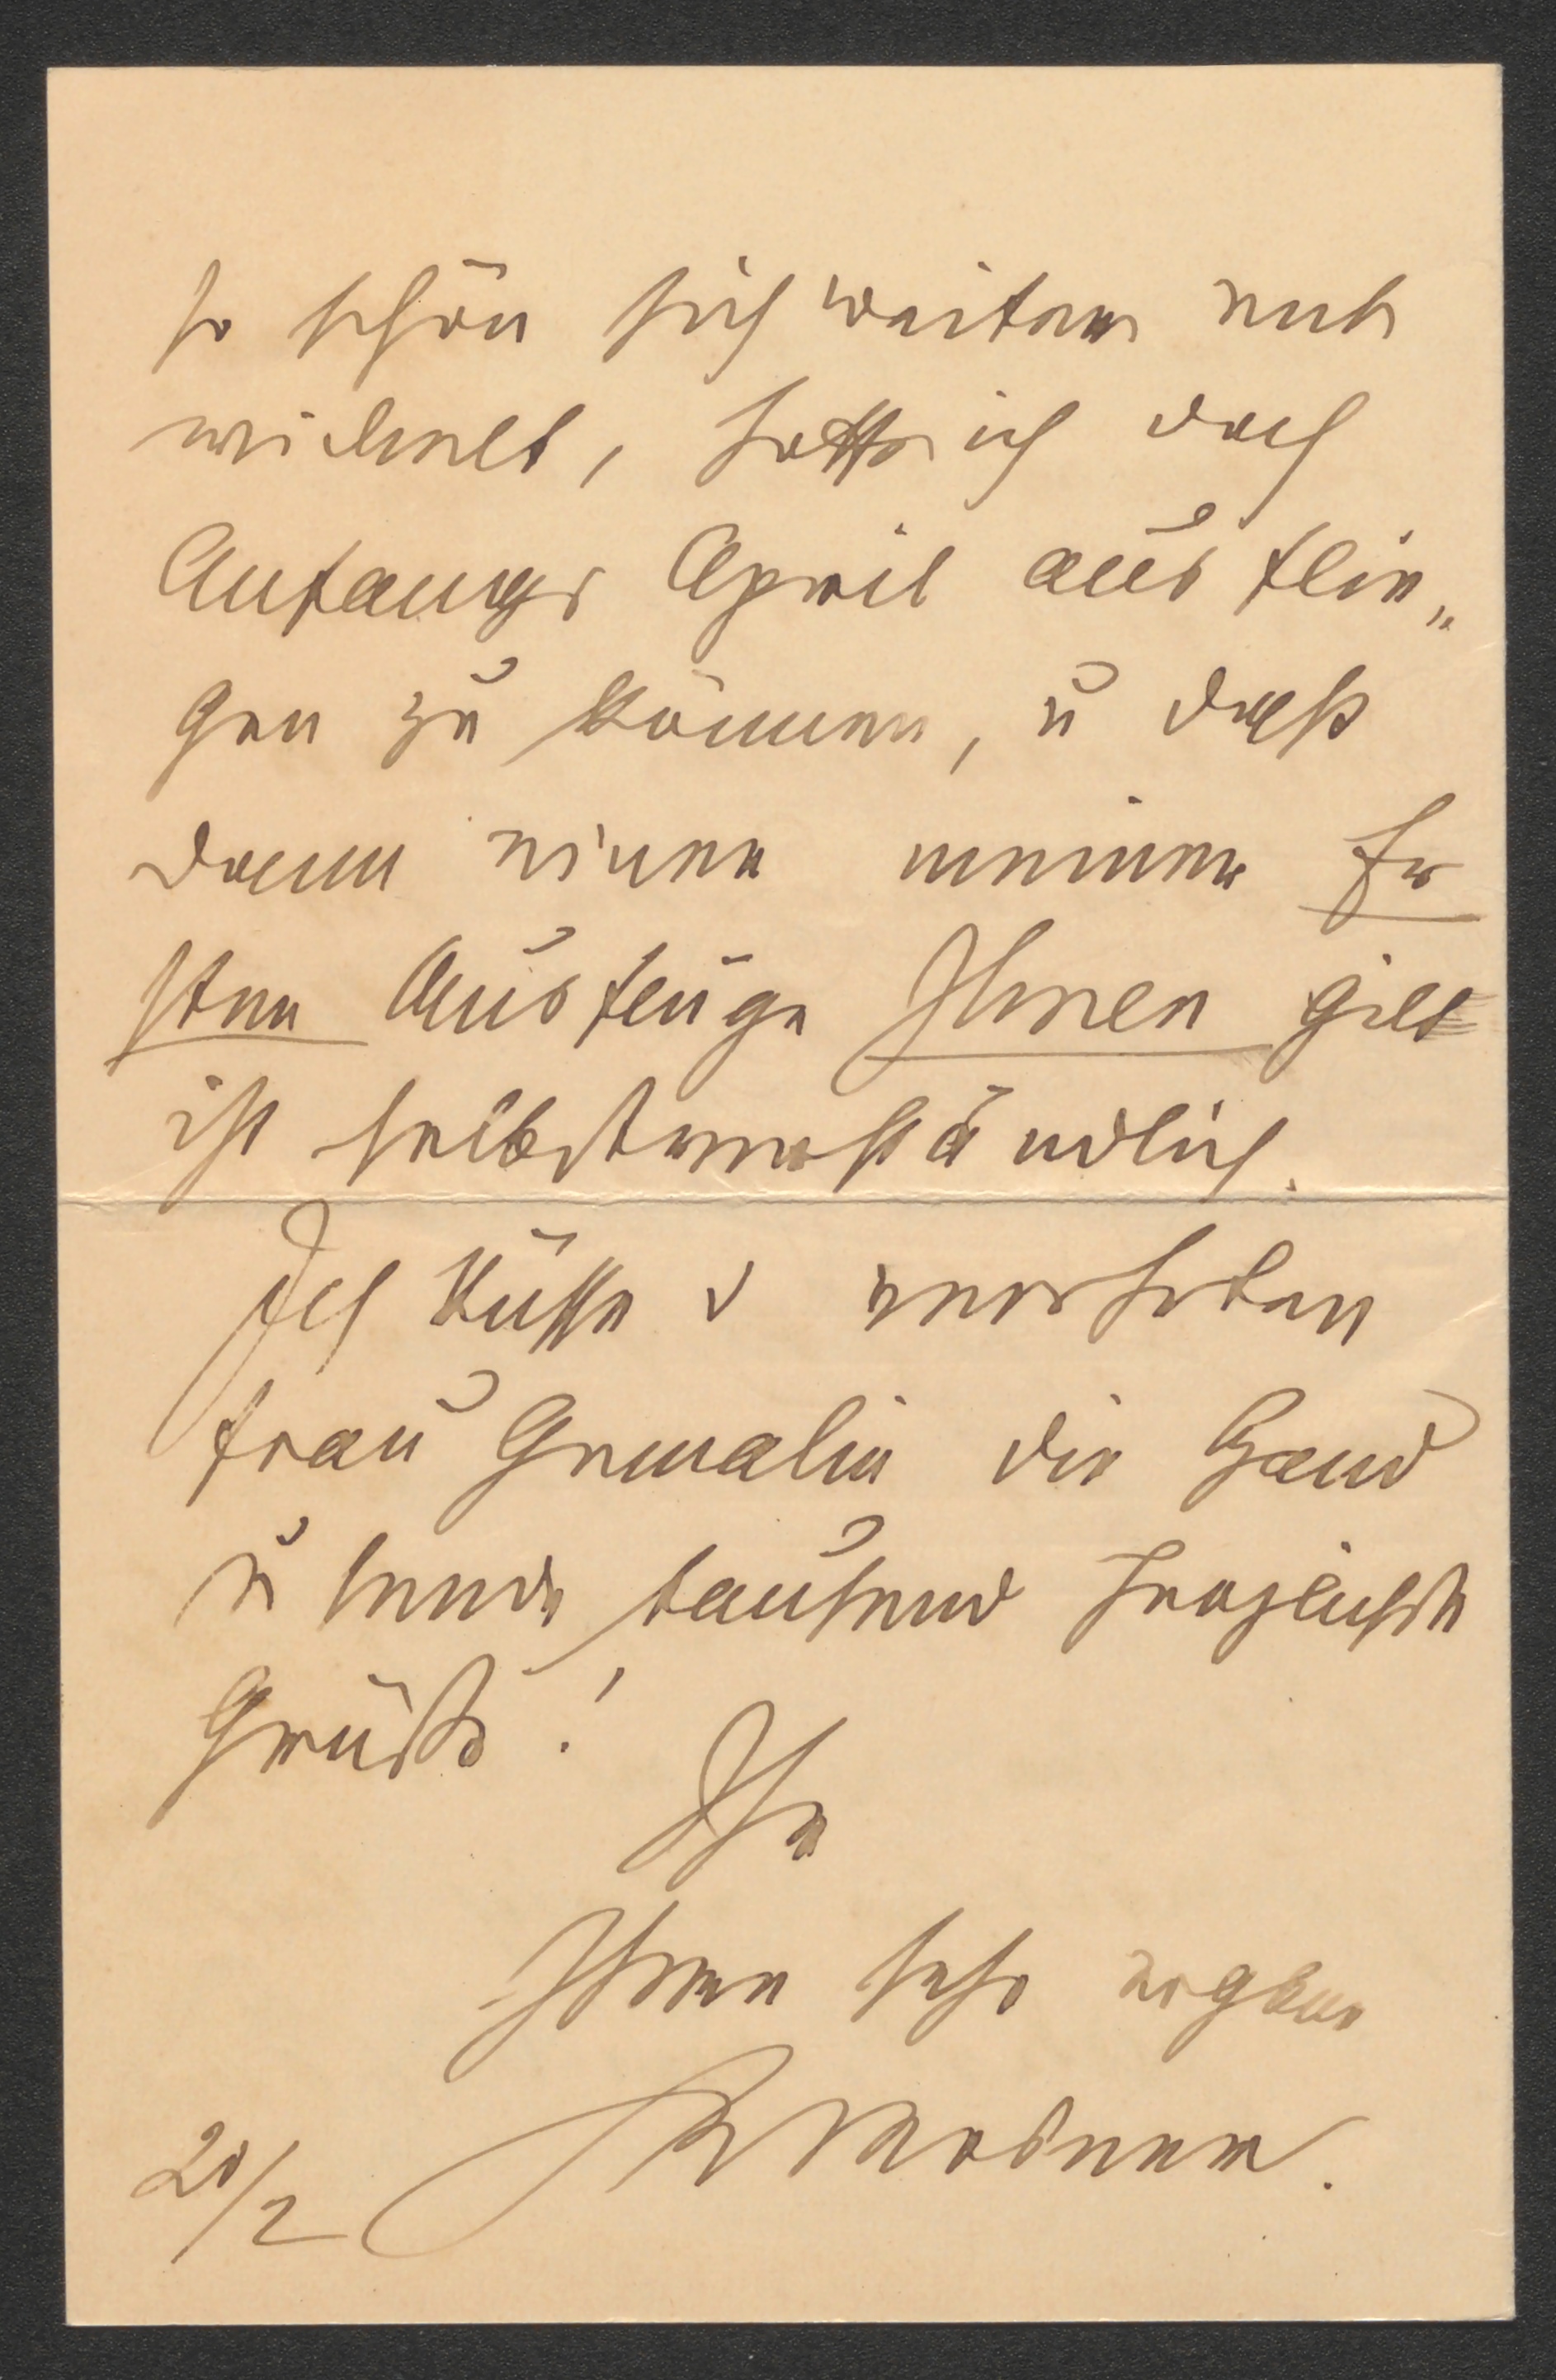 so schön sich weiter ent
wickelt, hoffe ich doch
Anfangs April ausflie„
gen zu können, u daß
dann einer meiner Er
sten Ausflüge Ihnen gilt
ist selbstverständlich.
Ich küsse d verehrten
Frau Gemalin die Hand
u sende tausend herzlichste
Grüße!
Ihr
Ihnen sehr ergben
20/2